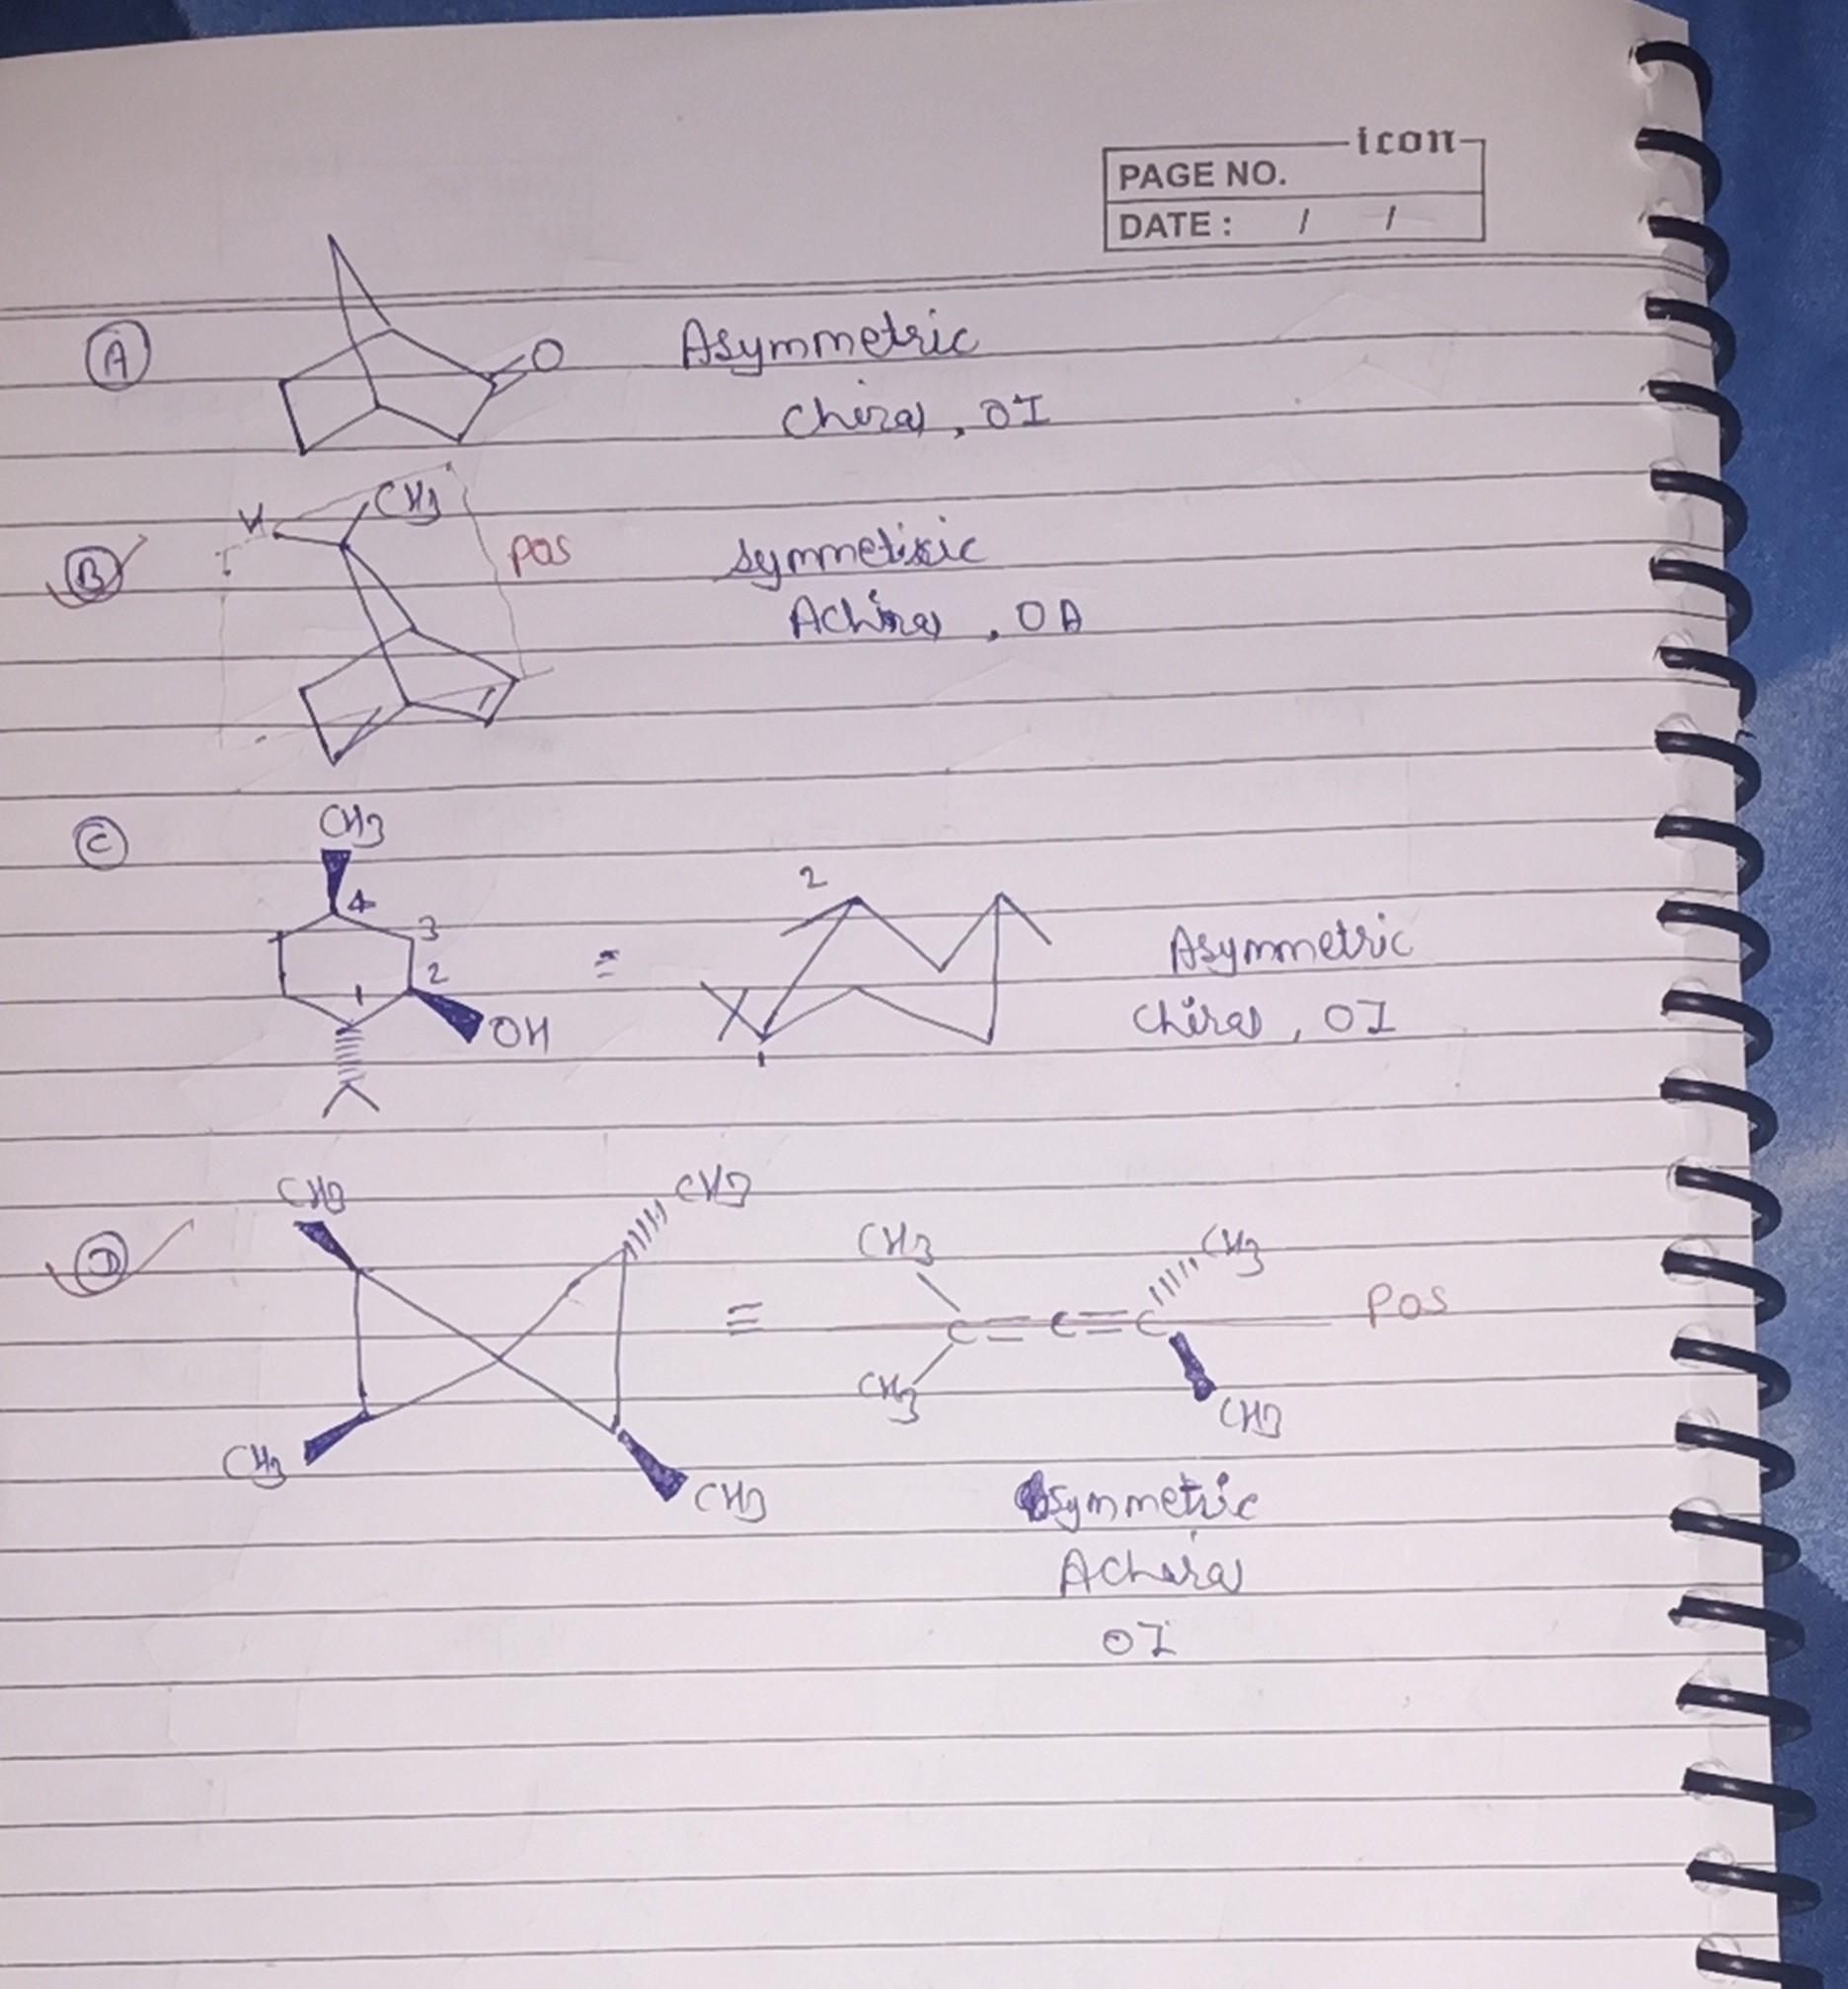 icon
PAGE NO.
DATE : / /
A
O
Asymmetric
Chiral, OI
B
H
CH3
POS
Symmetric
Achiral, OA
C
CH3
4
3
2
1
OH
=
2
1
Asymmetric
Chiral, OI
D
CH3
CH3
CH3
CH3
≡
CH3
CH3
C=C=C
POS
CH3
CH3
Symmetric
Achiral
OI